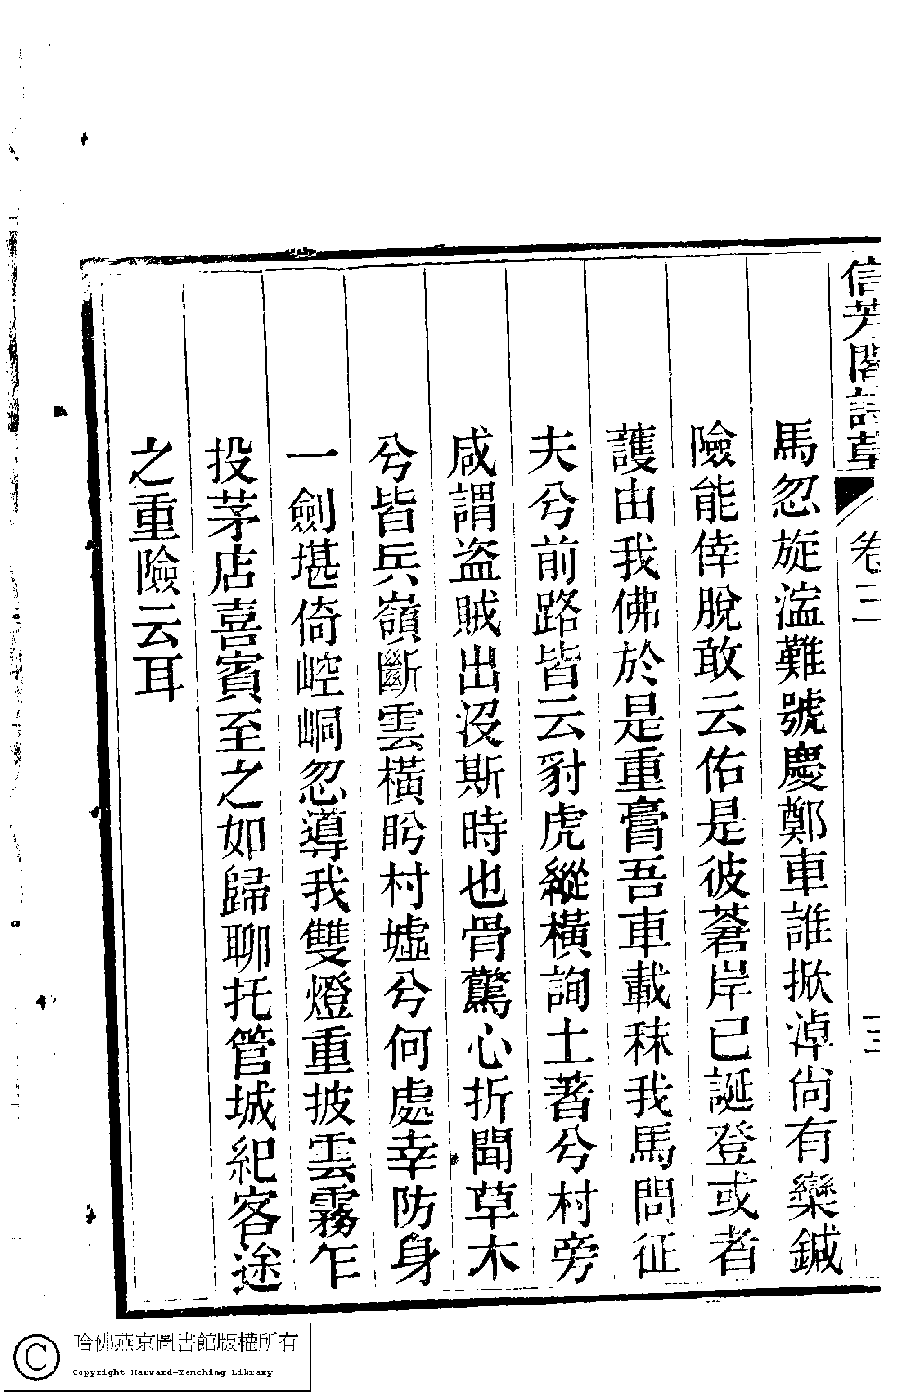 信芳閣詩草 卷三 三
馬忽旋濘難號慶鄭車誰掀淖尚有欒鍼
險能倖脫敢云佑是彼蒼岸已誕登或者
護由我佛於是重膏吾車載秣我馬問征
夫兮前路皆云豺虎縱橫詢土著兮村旁
咸謂盜賊出沒斯時也骨驚心折聞草木
兮皆兵嶺斷雲橫眄村墟兮何處幸防身
一劍堪倚崆峒忽導我雙燈重披雲霧乍
投茅店喜賓至之如歸聊托管城紀客途
之重險云耳
哈佛燕京圖書館版權所有
Copyright Harvard-Yenching Library